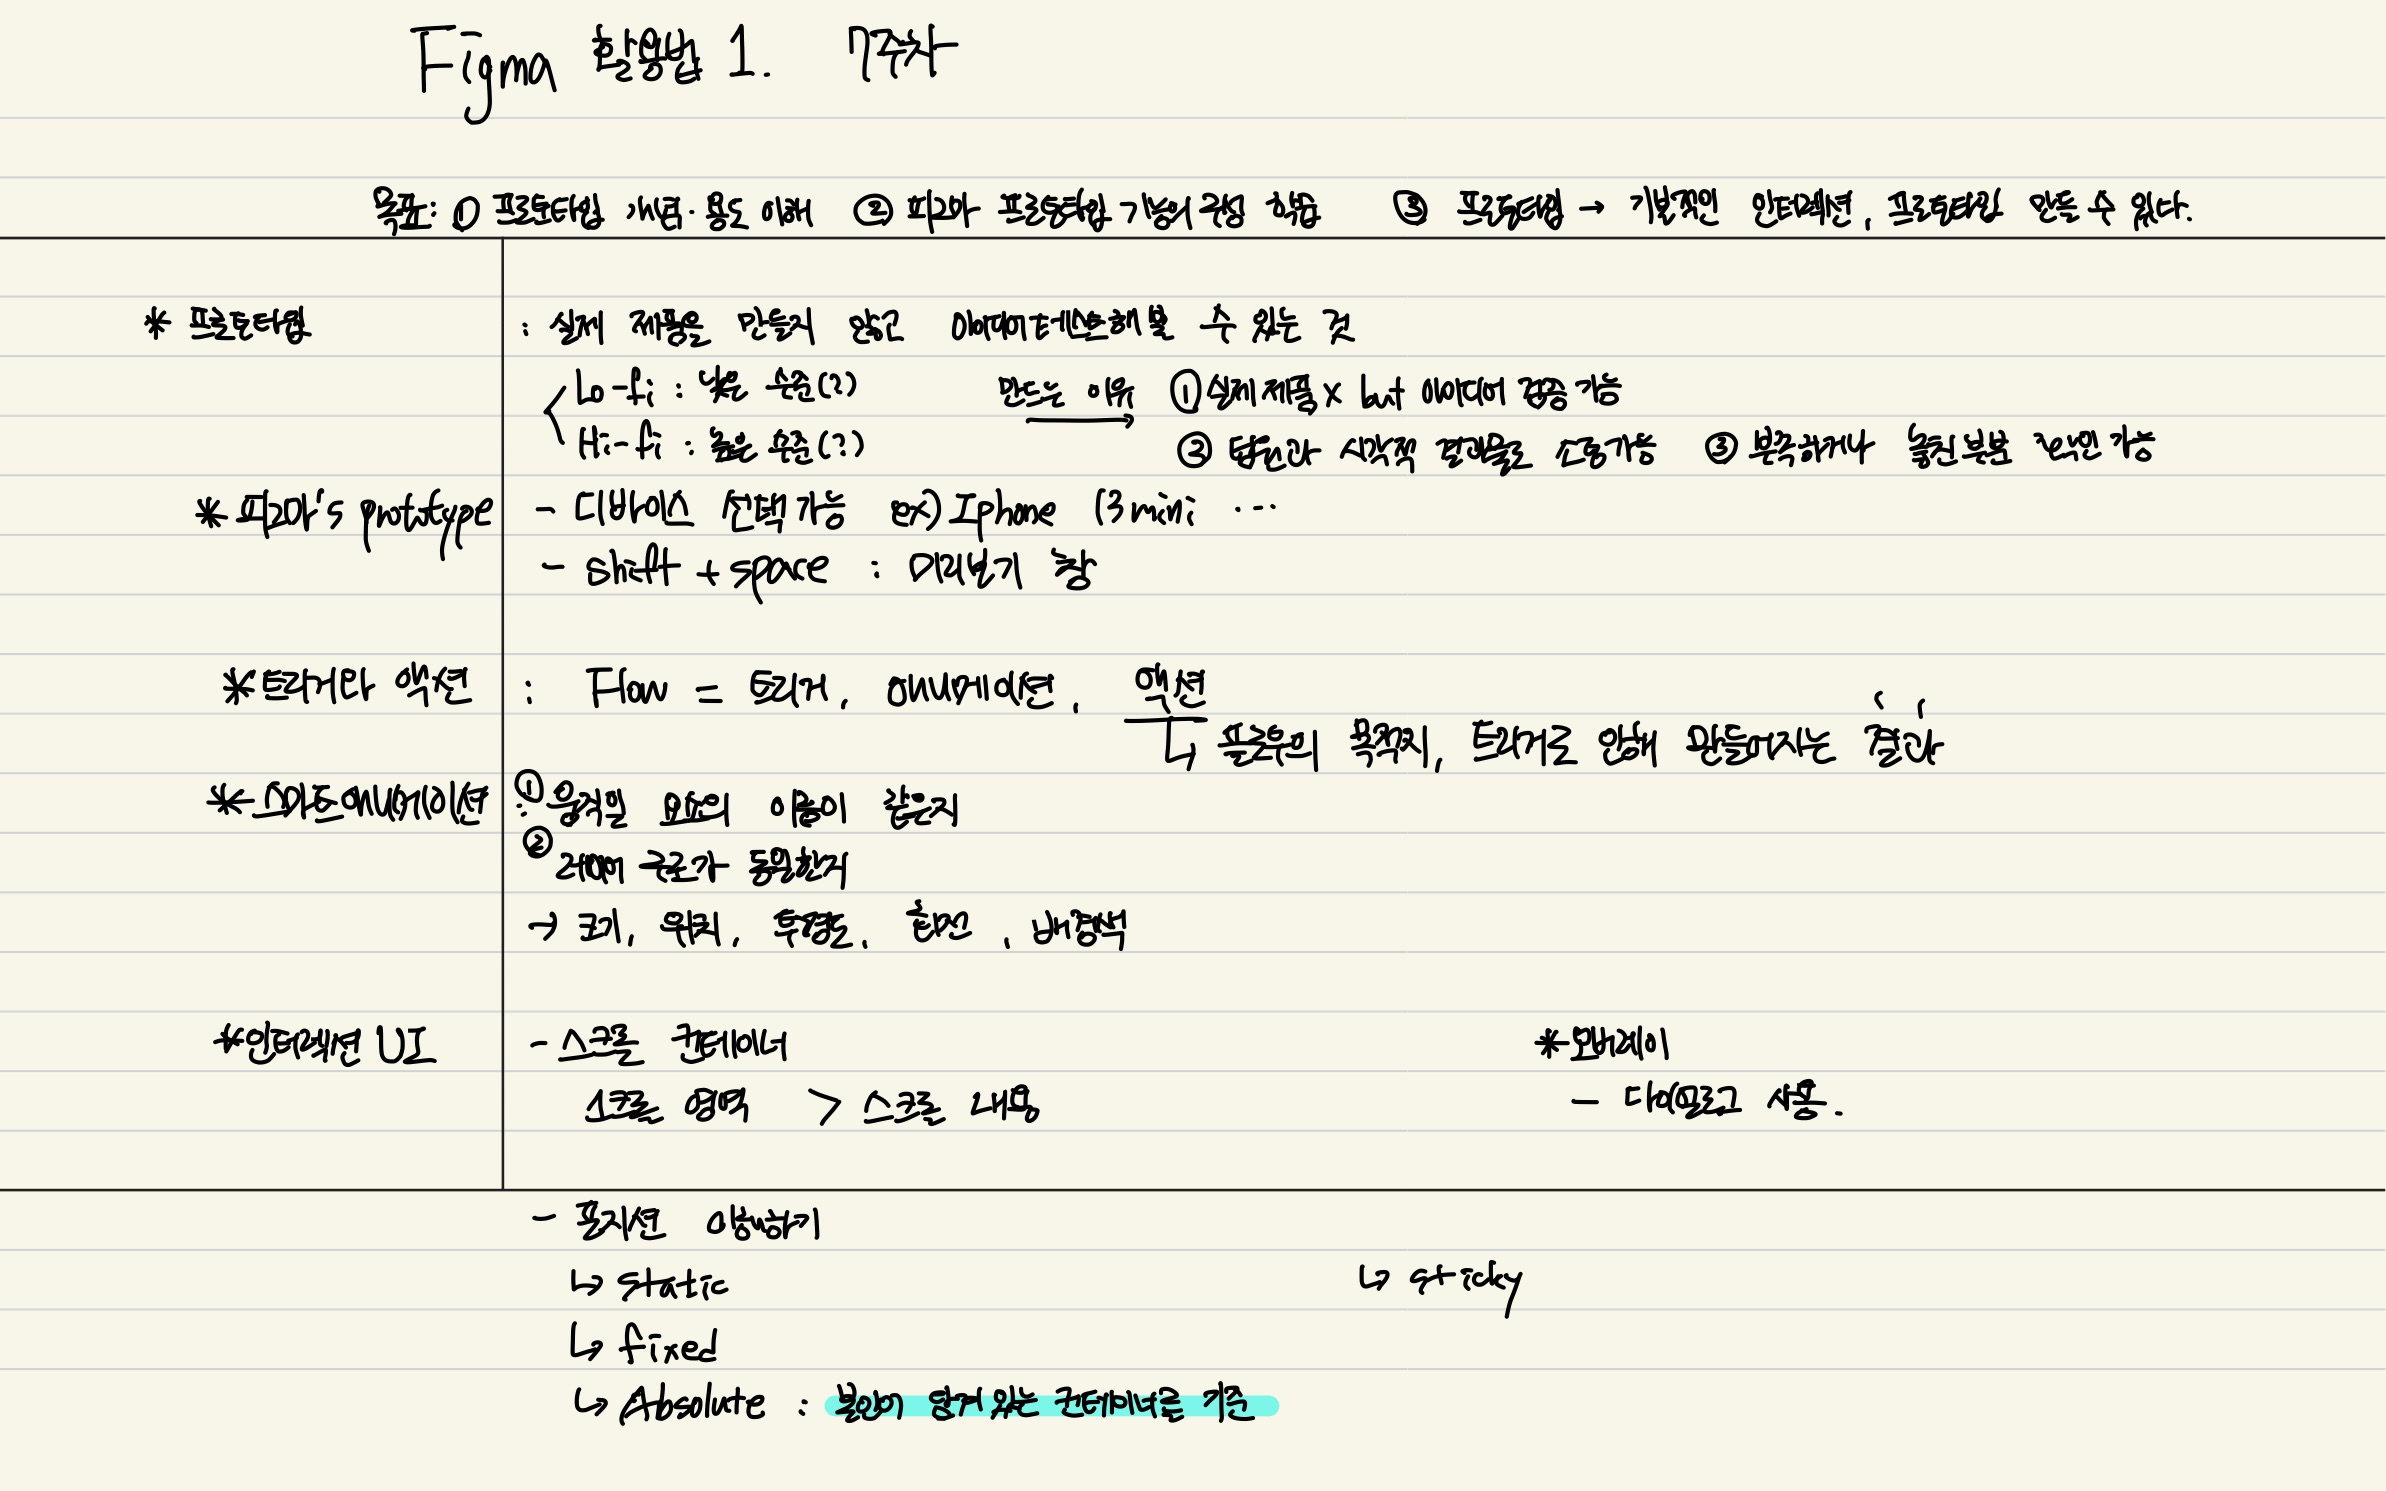 Figma 활용법 1. 7주차
목표: ① 프로토타입 개념·용도 이해 ② 피그마 프로토타입 기능의 구성 학습 ③ 프로토타입 → 기본적인 인터렉션, 프로토타입 만들 수 있다.
* 프로토타입 : 실제 제품을 만들지 않고 아이디어테스트해볼 수 있는 것
Lo-fi : 낮은 수준(?) 만드는 이유 ① 실제제품 x but 아이디어 검증 가능
Hi-fi : 높은 수준(?) ② 팀원과 시각적 결과물로 소통가능 ③ 부족하거나 놓친부분 확인 가능
* 피그마's prototype - 디바이스 선택 가능 ex) Iphone 13 mini ...
- shift + space : 미리보기 창
* 트리거와 액션 : Flow = 트리거, 애니메이션, 액션
↳ 플로우의 목적지, 트리거로 인해 만들어지는 결과
* 스마트애니메이션 : ① 움직일 요소의 이름이 같은지
② 레이어 구조가 동일한지
→ 크기, 위치, 투명도, 회전, 배경색
* 인터렉션 UI - 스크롤 컨테이너 * 오버레이
스크롤 영역 > 스크롤 내용 - 다이얼로그 사용.
- 포지션 이용하기
↳ static ↳ sticky
↳ fixed
↳ Absolute : 본인이 담겨 있는 컨테이너를 기준